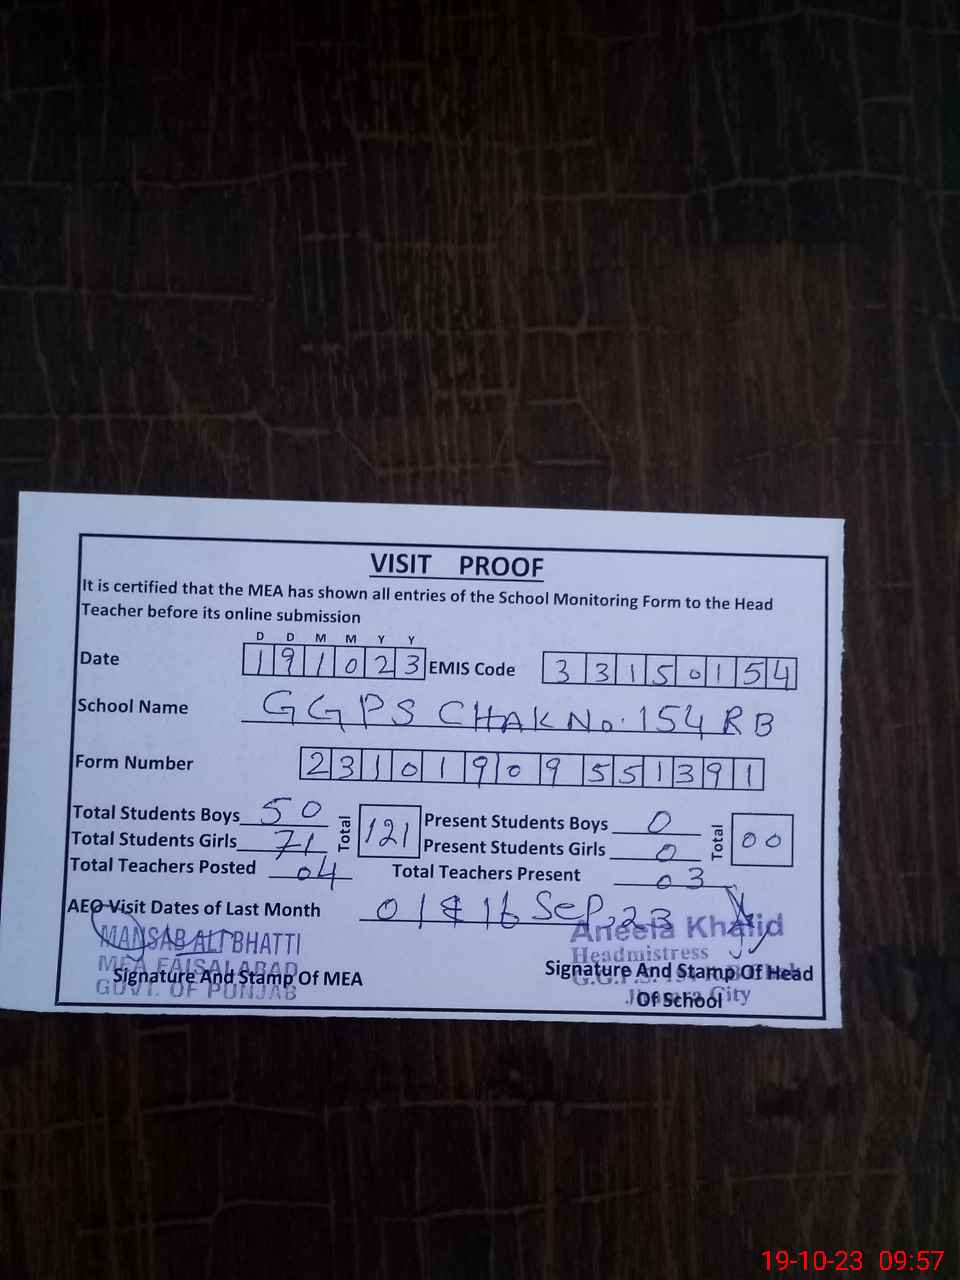 VISIT PROOF
It is certified that the MEA has shown all entries of the School Monitoring Form to the Head
Teacher before its online submission
D D M M Y Y
Date 191023 EMIS Code 33150154
School Name GGPS CHAK No. 154 RB
Form Number 23101909551391
Total Students Boys 50 Total 121 Present Students Boys 0 Total 00
Total Students Girls 71 Present Students Girls 0
Total Teachers Posted 04 Total Teachers Present 03
AEO Visit Dates of Last Month 01 & 16 Sep, 23
MANSAB ALI BHATTI
MEA FAISALABAD
GOVT. OF PUNJAB
Signature And Stamp Of MEA
Aneela Khalid
Headmistress
G.G.P.S.
City
Signature And Stamp Of Head
Of School
19-10-23 09:57